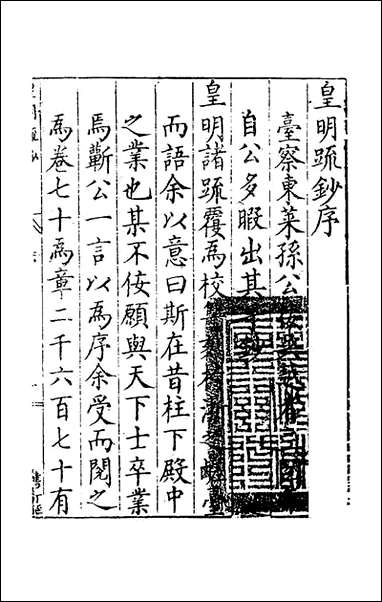 皇明疏鈔序
臺察東萊孫公按兩
自公多暇出其手
皇明諸疏覆為校
而語余以意曰斯在昔柱下殿中
之業也某不佞願與天下士卒業
焉蘄公一言以為序余受而閱之
為卷七十為章二千六百七十有